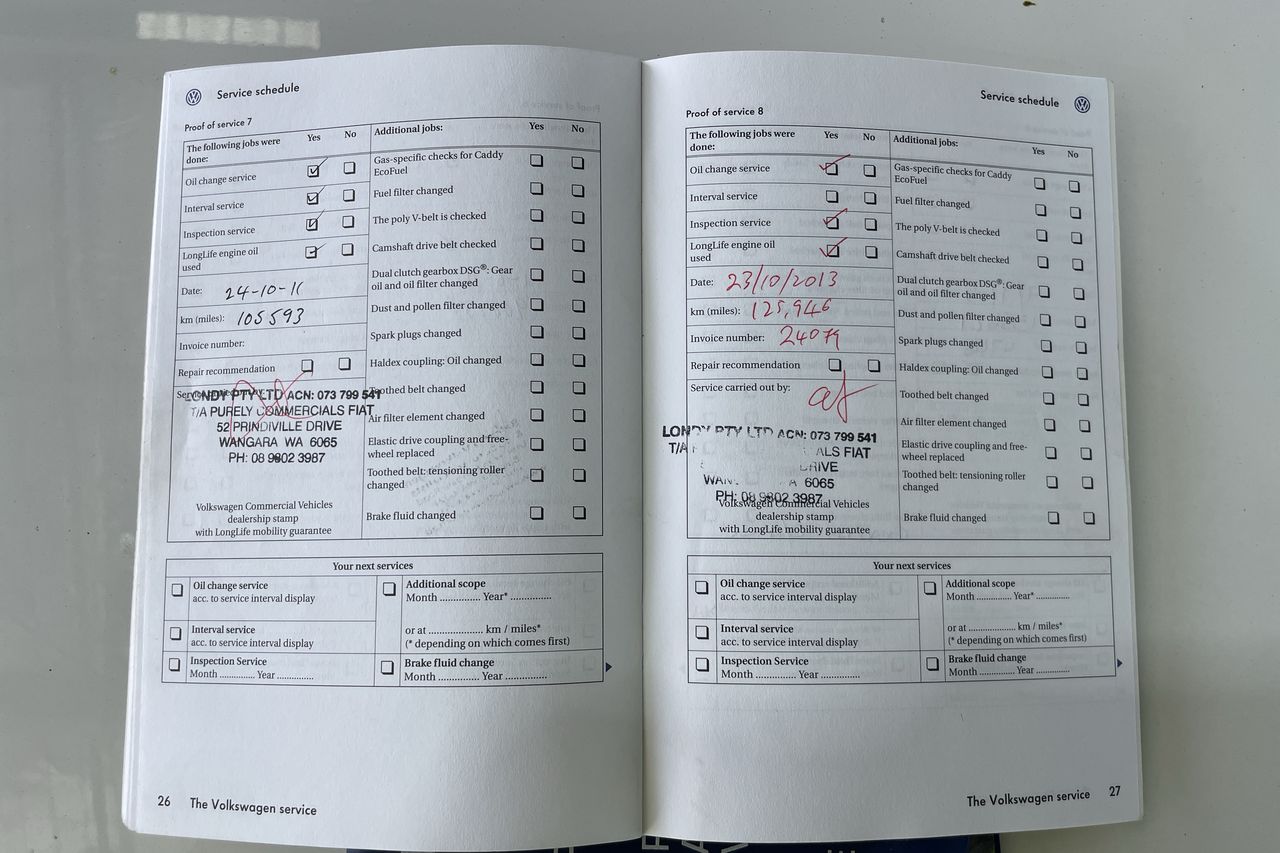 Service schedule
Proof of service 7
The following jobs were done:
Yes
No
Additional jobs:
Yes
No
Oil change service
Interval service
Inspection service
LongLife engine oil used
Date: 24-10-11
km (miles): 105593
Invoice number:
Repair recommendation
Gas-specific checks for Caddy
EcoFuel
Fuel filter changed
The poly V-belt is checked
Camshaft drive belt checked
Dual clutch gearbox DSG®: Gear
oil and oil filter changed
Dust and pollen filter changed
Spark plugs changed
Haldex coupling: Oil changed
Toothed belt changed
Air filter element changed
Elastic drive coupling and free-
wheel replaced
Toothed belt: tensioning roller
changed
Brake fluid changed
LONDY PTY LTD ACN: 073 799 541
T/A PURELY COMMERCIALS FIAT
52 PRINDIVILLE DRIVE
WANGARA WA 6065
PH: 08 9302 3987
Volkswagen Commercial Vehicles
dealership stamp
with LongLife mobility guarantee
Your next services
Oil change service
acc. to service interval display
Interval service
acc. to service interval display
Inspection Service
Month ............. Year .............
Additional scope
Month .............. Year* ..............
or at .................... km / miles*
(* depending on which comes first)
Brake fluid change
Month .............. Year ..............
26 The Volkswagen service
Service schedule
Proof of service 8
The following jobs were
done:
Yes
No
Additional jobs:
Yes
No
Oil change service
Interval service
Inspection service
LongLife engine oil
used
Date: 23/10/2013
km (miles): 125,946
Invoice number: 24079
Repair recommendation
Service carried out by:
Gas-specific checks for Caddy
EcoFuel
Fuel filter changed
The poly V-belt is checked
Camshaft drive belt checked
Dual clutch gearbox DSG®: Gear
oil and oil filter changed
Dust and pollen filter changed
Spark plugs changed
Haldex coupling: Oil changed
Toothed belt changed
Air filter element changed
Elastic drive coupling and free-
wheel replaced
Toothed belt: tensioning roller
changed
Brake fluid changed
PTY LTD ACN: 073 799 541
T/A ALS FIAT
6065
PH: 08 9302 3987
Volkswagen Commercial Vehicles
dealership stamp
with LongLife mobility guarantee
Your next services
Oil change service
acc. to service interval display
Interval service
acc. to service interval display
Inspection Service
Month ............. Year ..............
Additional scope
Month ............. Year* .............
or at .................... km / miles*
(* depending on which comes first)
Brake fluid change
Month .............. Year ..............
The Volkswagen service 27